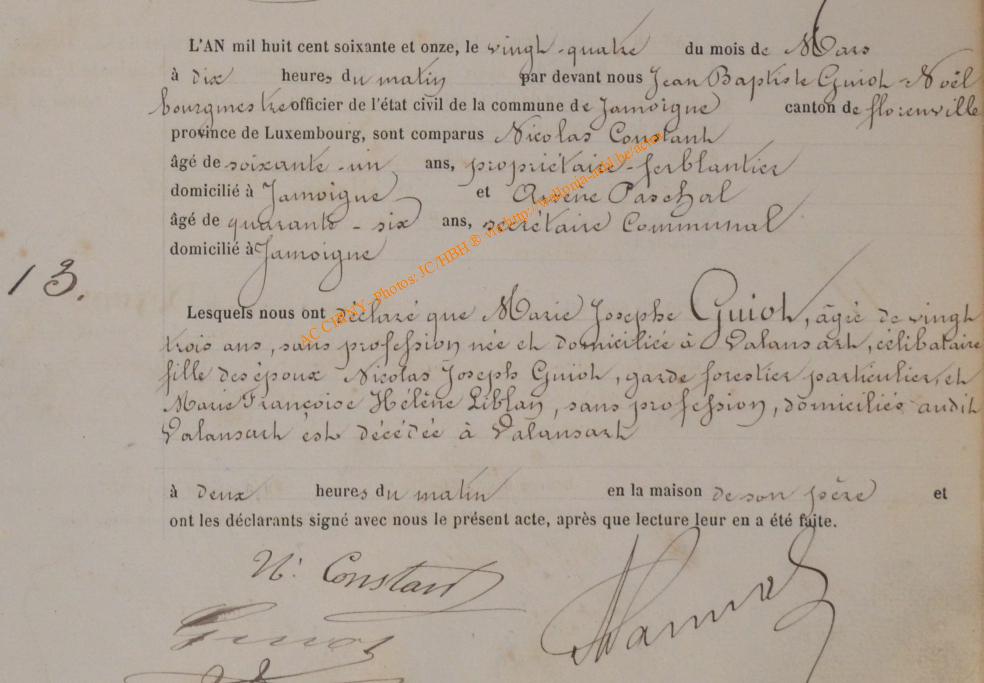 L'AN mil huit cent soixante et onze, le vingt-quatre du mois de Mars
à dix heures du matin par devant nous Jean Baptiste Guiot-Noël
bourgmestre officier de l'état civil de la commune de Jamoigne canton de florenville
province de Luxembourg, sont comparus Nicolas Constant
âgé de soixante-un ans, propriétaire-ferblantier
domicilié à Jamoigne et Arsène Paschal
âgé de quarante-six ans, secrétaire Communal
domicilié à Jamoigne
13.
Lesquels nous ont déclaré que Marie Josephe Guiot, âgée de vingt
trois ans, sans profession née et domiciliée à Valansart, célibataire
fille des époux Nicolas Joseph Guiot, garde forestier particulier, et
Marie Françoise Hélène Liblan, sans profession, domiciliés audit
Valansart est décédée à Valansart
à deux heures du matin en la maison de son père et
ont les déclarants signé avec nous le présent acte, après que lecture leur en a été faite.
N. Constant
Guiot
AC CHINY - Photos: JC/HBH ®